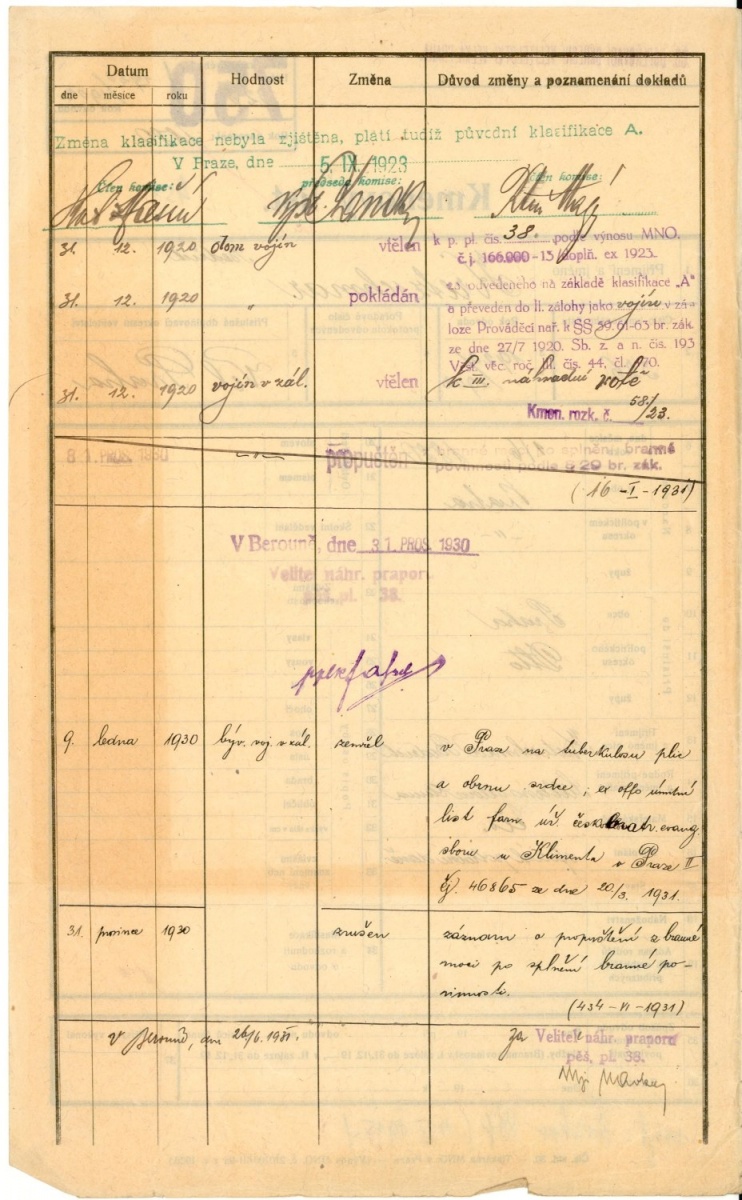 Datum
Hodnost
Změna
Důvod změny a poznamenání dokladů
dne
měsíce
roku
Změna klasifikace nebyla zjištěna, platí tudíž původní klasifikace A.
V Praze, dne 5. IX. 1923
Člen komise:
předseda komise:
člen komise:
31. 12. 1920 dom vojín vtělen k p. pl. čís. 38. podle výnosu MNO.
č. j. 166.000-13/doplň. ex 1923.
31. 12. 1920 " pokládán za odvedeného na základě klasifikace „A"
a převeden do II. zálohy jako vojín v zá-
loze Prováděcí nař. k §§ 39, 61-63 br. zák.
ze dne 27/7 1920. Sb. z. a n. čís. 193
Věst. věc. roč. III. čís. 44, čl. 70.
31. 12. 1920 vojín v zál. vtělen k III. náhradné rotě
Kmen. rozk. č. 58/23.
31. 1930 propuštěn z branné moci po splnění branné
povinnosti podle § 29 br. zák.
(16-I-1931)
V Berouně, dne 31. PROS. 1930
Velitel náhr. praporu
pěš. pl. 38.
9. ledna 1930 býv. voj. v zál. zemřel v Praze na tuberkulosu plic
a obrnu srdce; ex offo úmrtní
list far. úř. českobratr. evang.
sboru u Klimenta v Praze II
čj. 46865 ze dne 20/3. 1931.
31. prosince 1930 zrušen záznam o propuštění z branné
moci po splnění branné po-
vinnosti.
(434-VI-1931)
V Berouně, dne 26/6. 1931.
Za Velitele náhr. praporu
pěš. pl. 38.